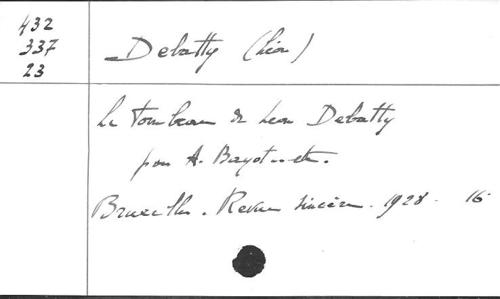 432
337
23
Debatty (Léon)
Le Tombeau de Leon Debatty
par A. Bayot. etc.
Bruxelles. Revue sincère. 1928. 16°